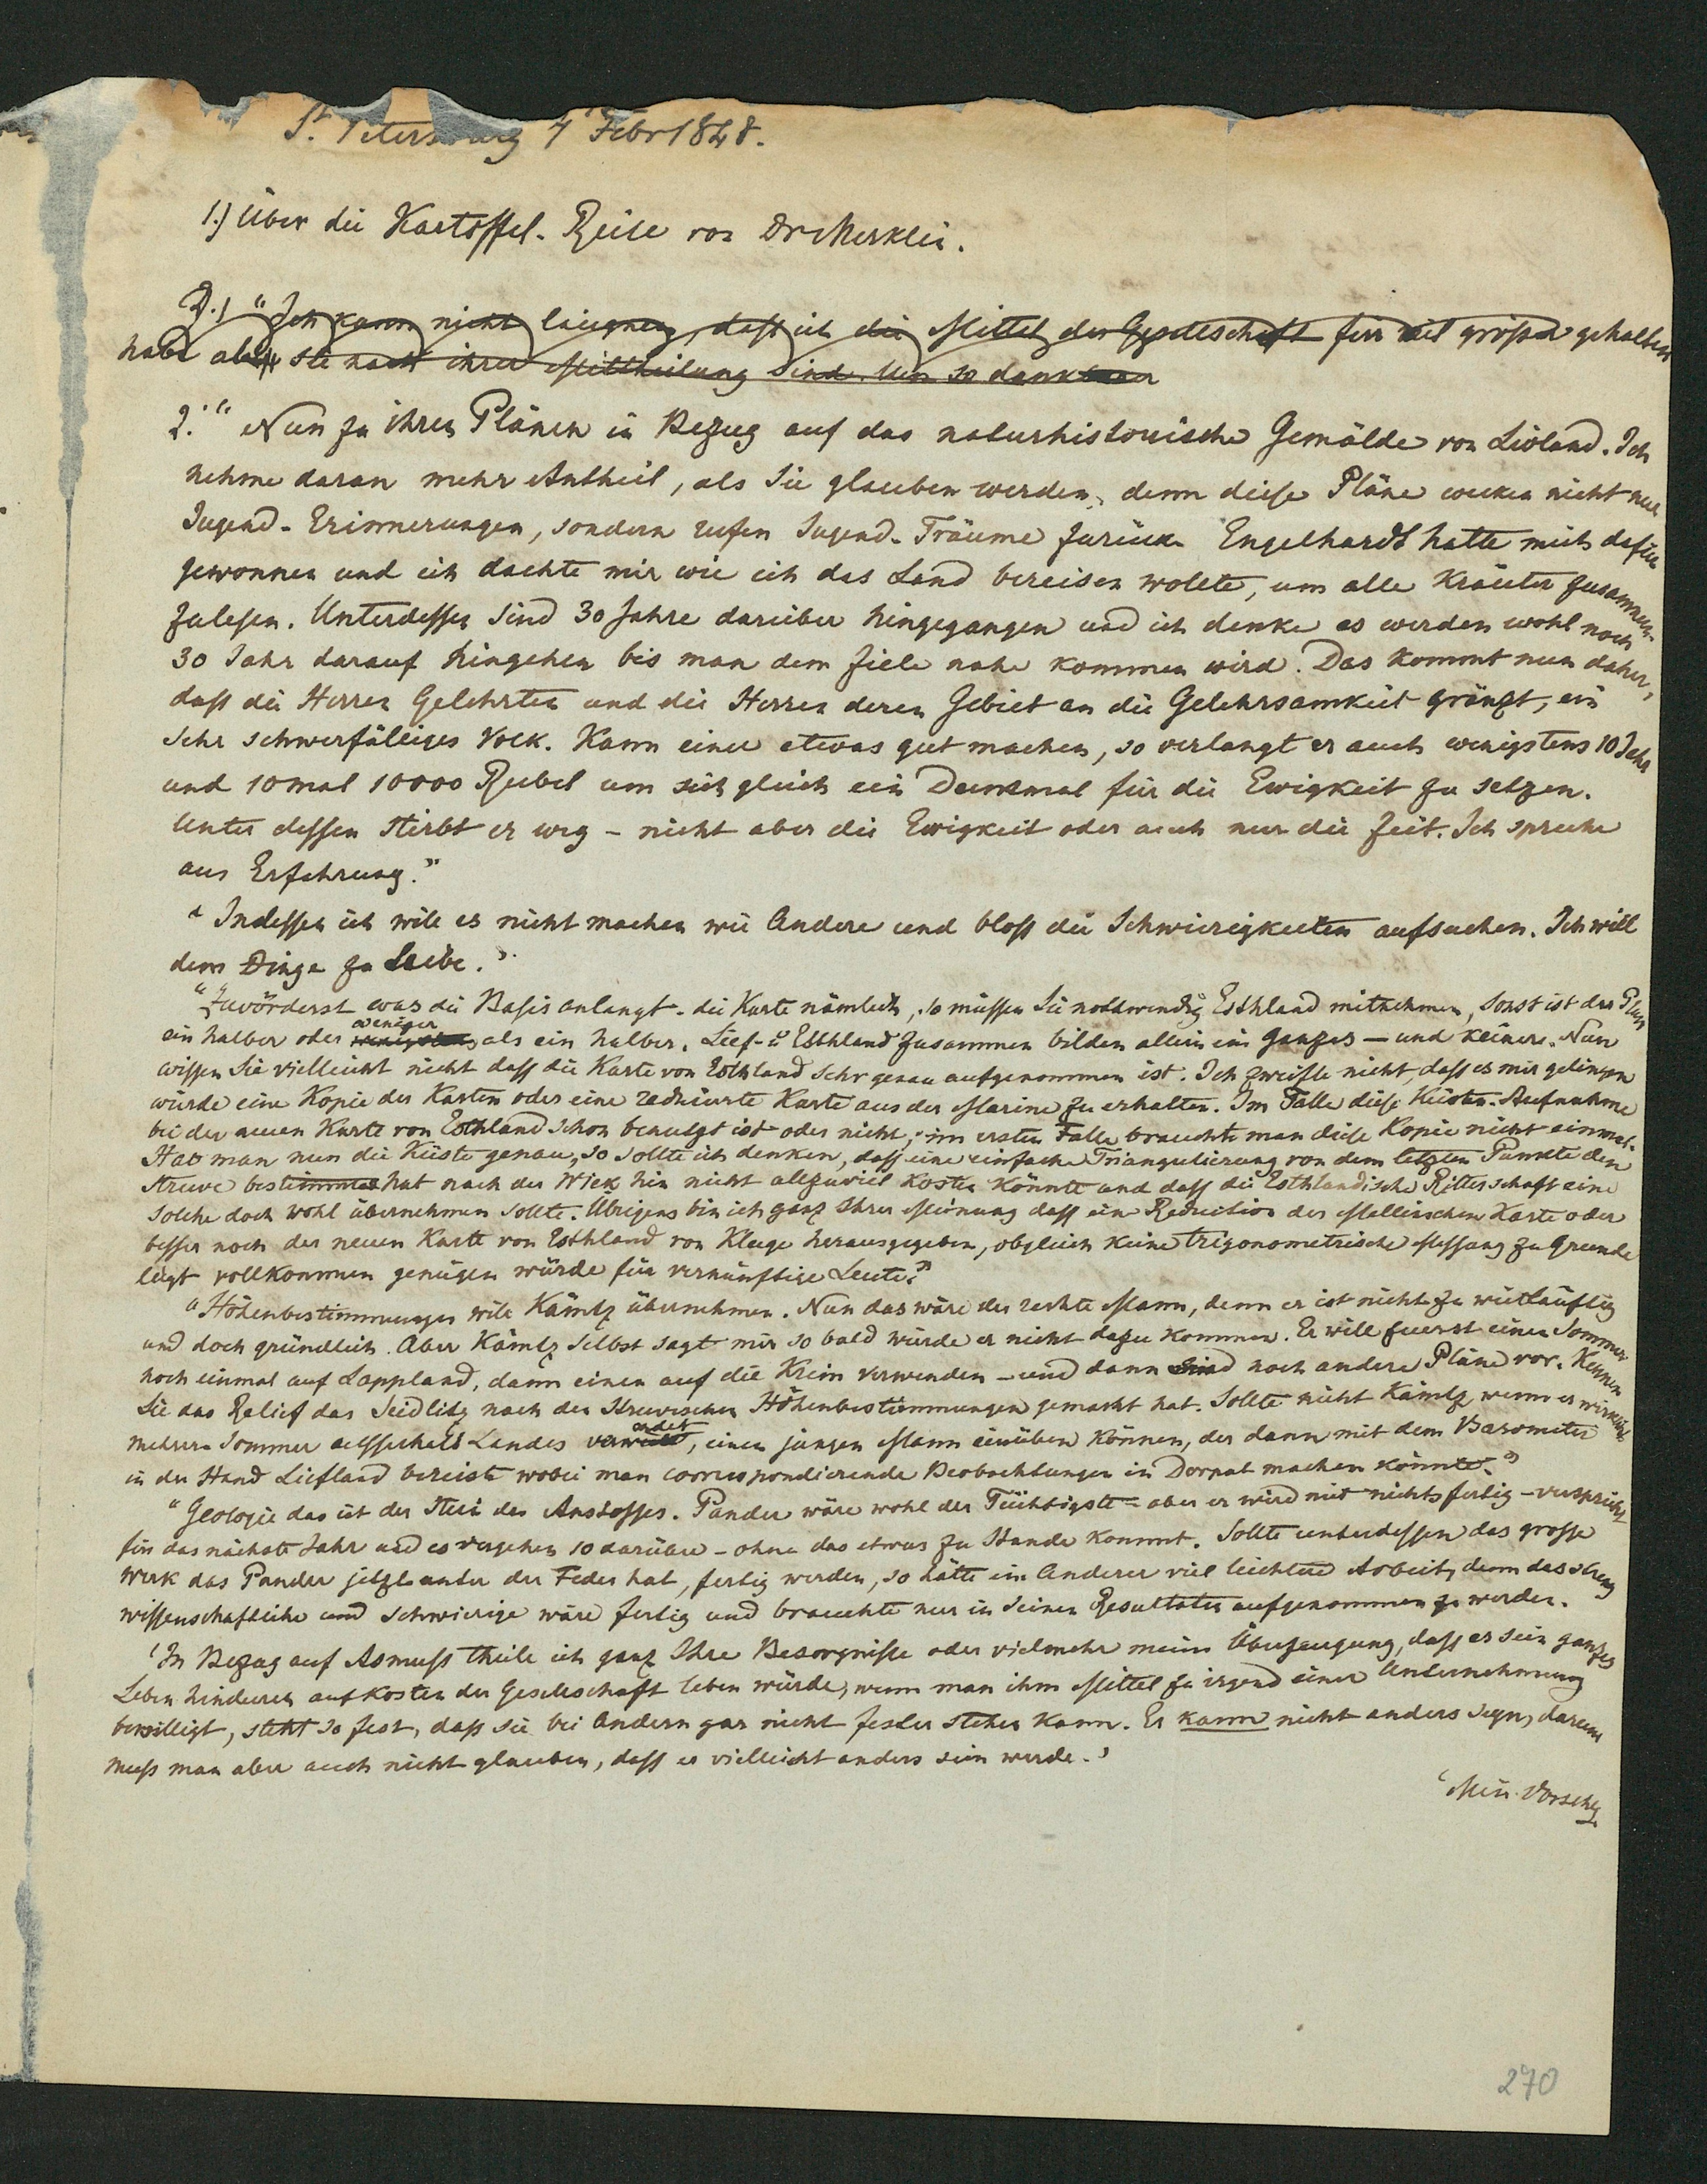 St. Petersburg 7 Febr 1848.
1.) Über die Kartoffel-Reise von Dr Merklin.
2.) "Ich kann nicht läugnen, dass ich die Mittel der Gesellschaft für viel grösser gehalten
habe als sie nach ihrer Mittheilung sind. Um so dankbarer
2. "Nun zu ihren Plänen in Bezug auf das naturhistorische Gemälde von Livland. Ich
nehme daran mehr Antheil, als Sie glauben werden, denn diese Pläne wecken nicht nur
Jugend-Erinnerungen, sondern rufen Jugend-Träume zurück. Engelhardt hatte mich dafür
gewonnen und ich dachte mir wie ich das Land bereisen wollte, um alle Kräuter zusammen-
zulesen. Unterdessen sind 30 Jahre darüber hingegangen und ich denke es werden wohl noch
30 Jahr darauf hingehen bis man dem Ziele nahe kommen wird. Das kommt nun daher,
dass die Herren Gelehrten und die Herren deren Gebiet an die Gelehrsamkeit gränzt, ein
sehr schwerfälliges Volk. Kann einer etwas gut machen, so verlangt er auch wenigstens 10 Jahr
und 10 mal 10000 Rubel um sich gleich ein Denkmal für die Ewigkeit zu setzen.
Unter dessen stirbt er weg – nicht aber die Ewigkeit oder auch nur die Zeit. Ich spreche
aus Erfahrung."
"Indessen ich will es nicht machen wie Andere und bloss die Schwierigkeiten aufsuchen. Ich will
dem Dinge zu Leibe."
"Zuvörderst was die Basis anlangt – die Karte nämlich, so müssen Sie nothwendig Esthland mitnehmen, sonst ist der Plan
ein halber oder wenigstens weniger als ein halber. Lief- u Esthland zusammen bilden allein ein Ganzes – und keiner. Nun
wissen Sie vielleicht nicht dass die Karte von Esthland sehr genau aufgenommen ist. Ich zweifle nicht, dass es mir gelingen
würde eine Kopie der Karten oder eine reducirte Karte aus der Marine zu erhalten. Im Falle diese Küsten-Aufnahme
bei der neuen Karte von Esthland schon benutzt ist oder nicht; im ersten Falle brauchte man diese Kopie nicht einmal.
Hat man nun die Küste genau, so sollte ich denken, dass eine einfache Triangulierung von dem letzten Punkte den
Struve bestimmt hat nach der Wiek hin nicht allzuviel kosten könnte und dass die Esthländische Ritterschaft eine
solche doch wohl übernehmen sollte. Übrigens bin ich ganz Ihrer Meinung dass eine Reduction der Mellinschen Karte oder
besser noch der neuen Karte von Esthland von Kluge herausgegeben, obgleich keine trigonometrische Messung zu Grunde
liegt vollkommen genügen würde für vernünftige Leute."
"Höhenbestimmungen will Kämtz übernehmen. Nun das wäre der rechte Mann, denn er ist nicht zu weitläuftig
und doch gründlich. Aber Kämtz selbst sagt mir so bald würde er nicht dazu kommen. Er will zuerst einen Sommer
noch einmal auf Lappland, dann einen auf die Krim verwenden – und dann sind noch andere Pläne vor. Kennen
Sie das Relief das Seidlitz nach den Struveschen Höhenbestimmungen gemacht hat. Sollte nicht Kämtz, wenn er wirklich
mehrere Sommer ausserhalb Landes verwendet, einen jungen Mann einüben können, der dann mit dem Barometer
in der Hand Liefland bereiste wobei man correspondierende Beobachtungen in Dorpat machen könnte."
"Geologie das ist der Stein des Anstosses. Pander wäre wohl der Tüchtigste – aber er wird mit nichts fertig – verspricht
für das nächste Jahr und es vergehen 10 darüber – ohne das etwas zu Stande kommt. Sollte unterdessen das grosse
Werk das Pander jetzt unter der Feder hat, fertig werden, so hätte ein Anderer viel leichtere Arbeit, denn das streng
wissenschaftliche und schwierige wäre fertig und brauchte nur in seinen Resultaten aufgenommen zu werden.
"In Bezug auf Asmuss theile ich ganz Ihre Besorgnisse oder vielmehr meine Überzeugung, dass er sein ganzes
Leben hindurch auf Kosten der Gesellschaft leben würde, wenn man ihm Mittel zu irgend einer Unternehmung
bewilligt, steht so fest, dass sie bei Andern gar nicht fester stehen kann. Er kann nicht anders seyn, darum
muss man aber auch nicht glauben, dass es vielleicht anders sein werde."
"Mein Vorschlg
270